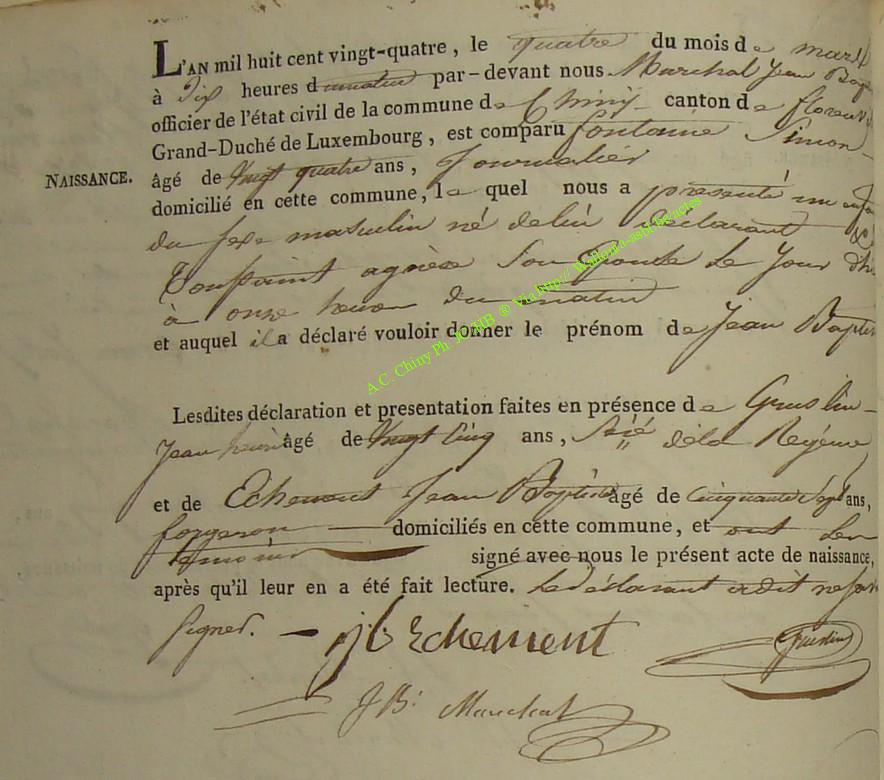 L'AN mil huit cent vingt-quatre, le quatre du mois de mars
à Dix heures du matin par-devant nous Marchal Jean Bap
officier de l'état civil de la commune de Chiny canton de florenv
Grand-Duché de Luxembourg, est comparu fontaine Simon
NAISSANCE.
âgé de Vingt quatre ans, Journalier
domicilié en cette commune, le quel nous a presenté un enf
du sexe masculin né de lui Déclarant &
Toussaint agnèse Son Epouse Le Jour d'hi
à onze heures du matin
et auquel il a déclaré vouloir donner le prénom de Jean Baptis
A.C. Chiny Ph JC HB ® Via http:// Wallonia-asbl
Lesdites déclaration et presentation faites en présence de Gruslin
Jean henri âgé de Vingt Cinq ans, de la Régence
et de Echement Jean Baptiste âgé de Cinquante Sept ans,
forgeron domiciliés en cette commune, et ont Les
témoins signé avec nous le présent acte de naissance,
après qu'il leur en a été fait lecture. Le déclarant a dit ne savoir
Signer.
jb Echement
Gruslin
J B. Marchal